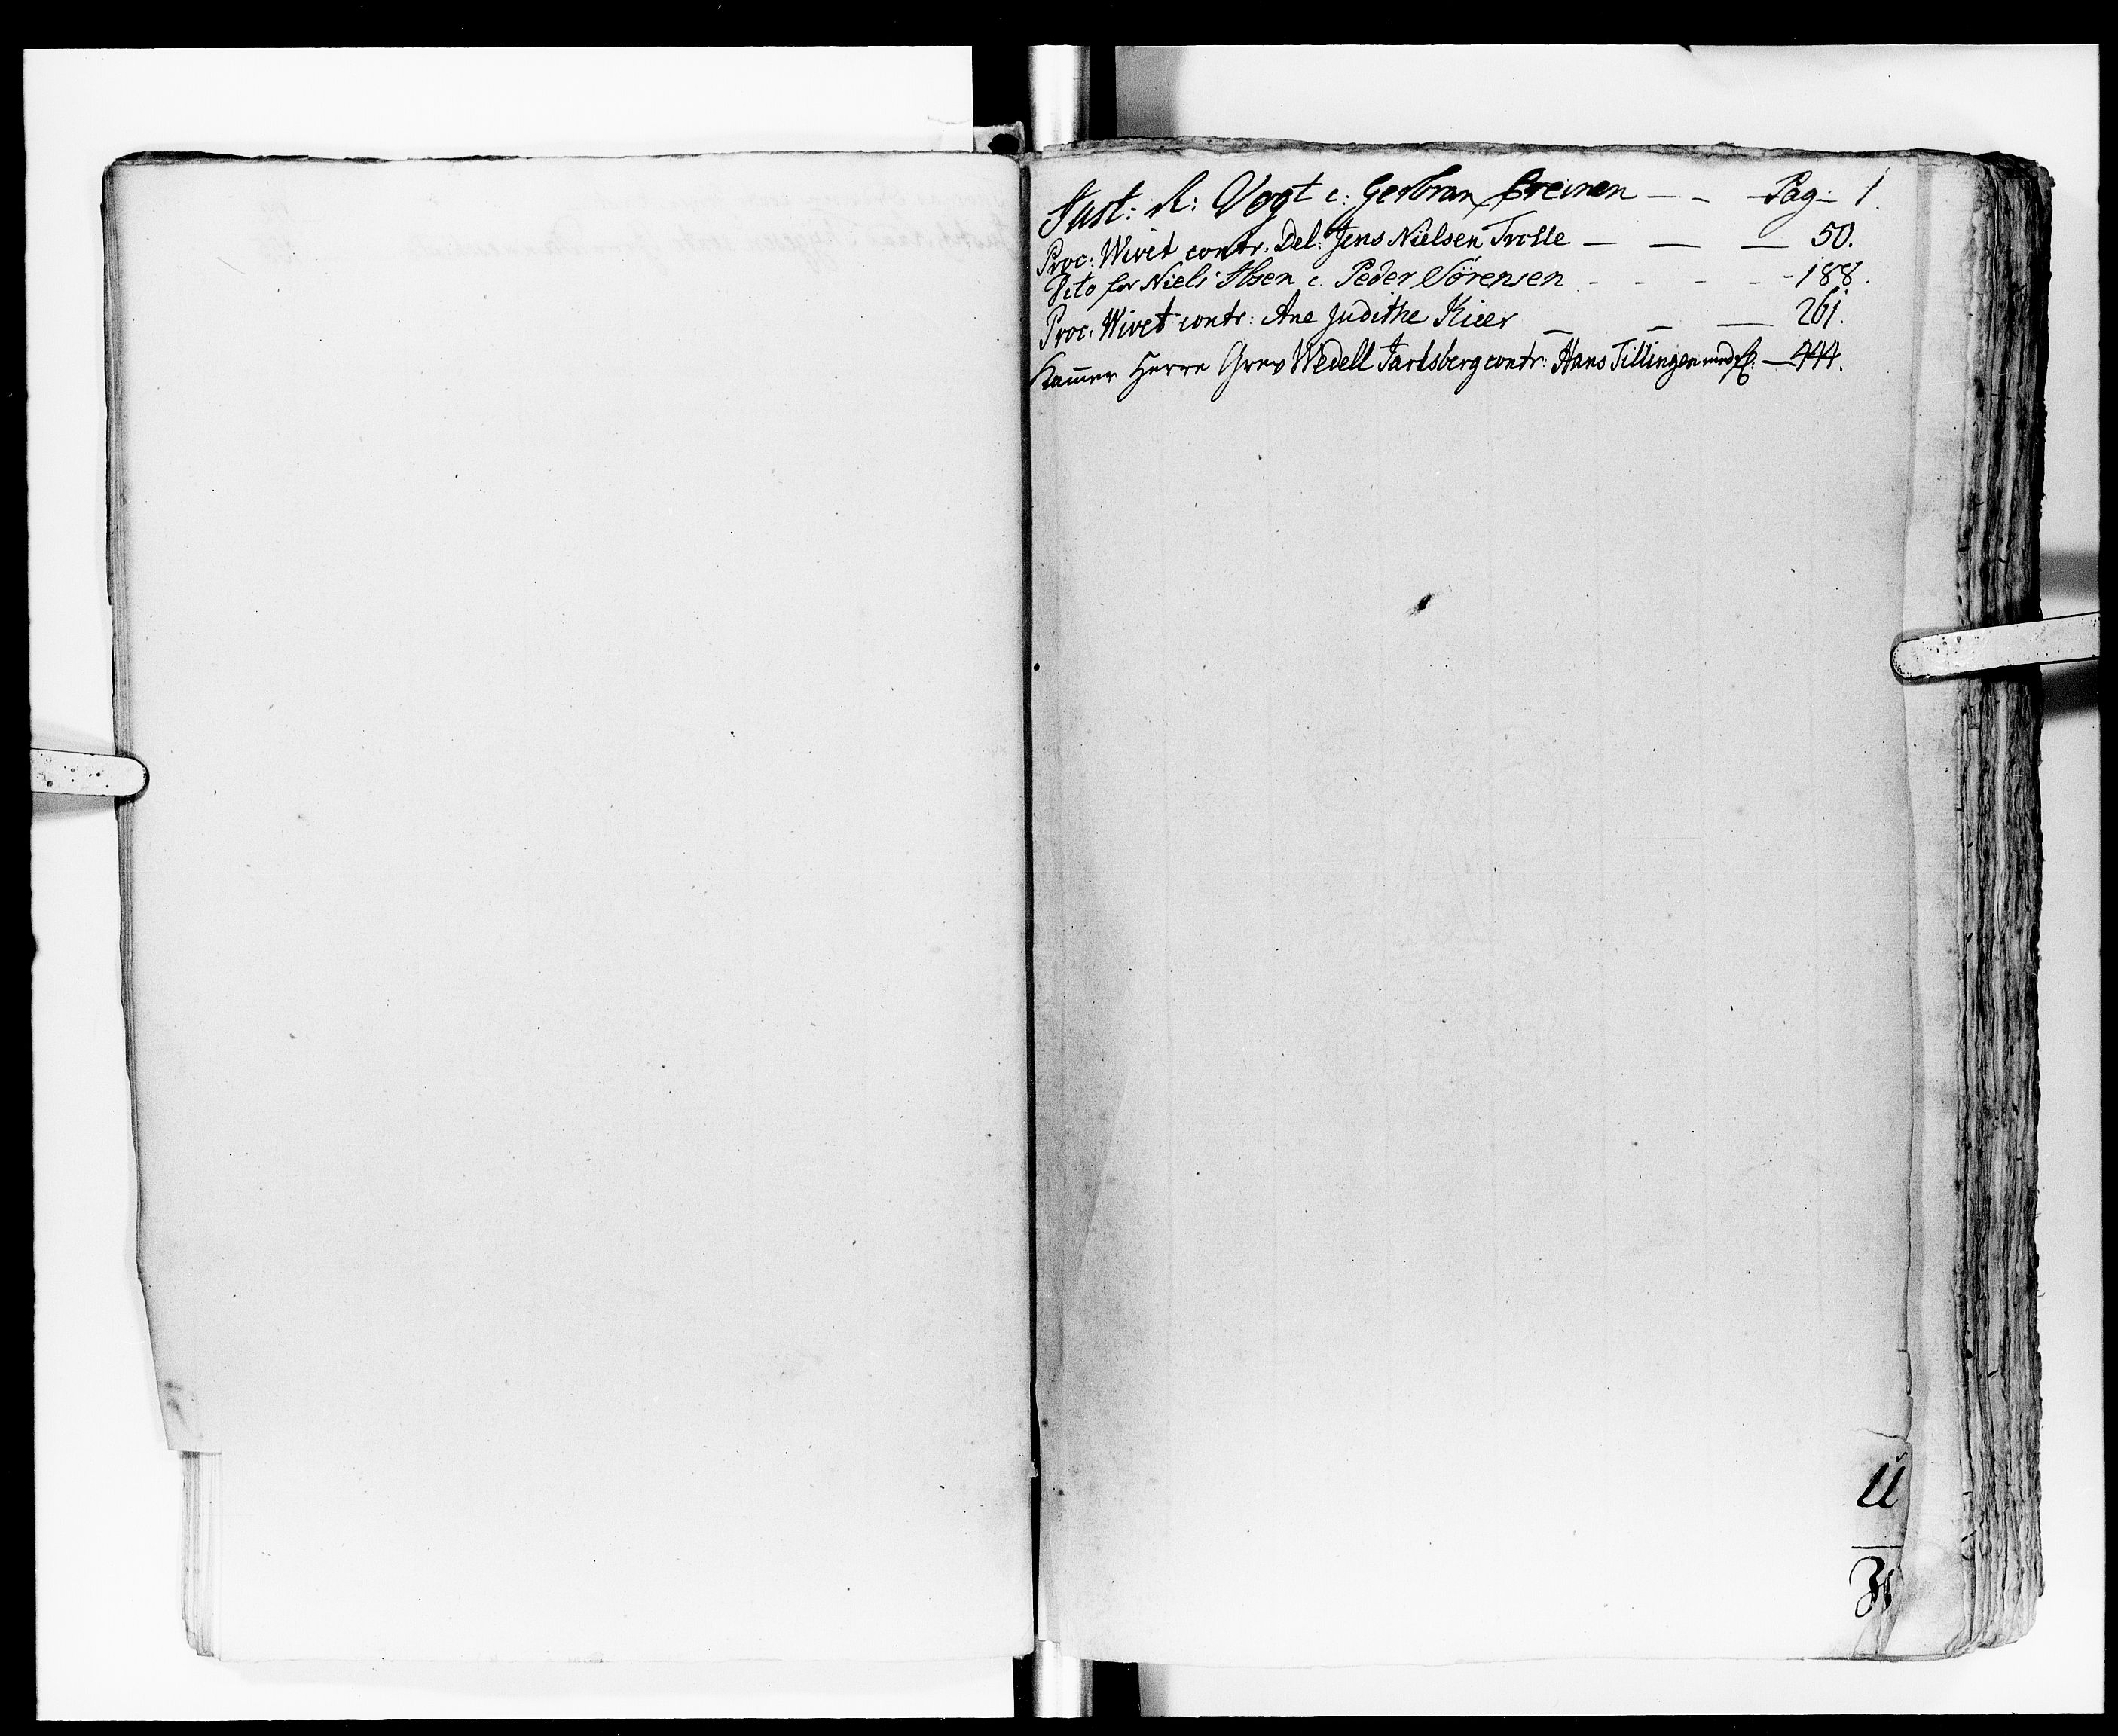 Just: R: Vogt c: Gerbran Preinen — - — Pag- 1.
Proc: Wivet contr. Del: Jens Nielsen Trolle — — — 50.
Dito for Niels Ibsen c. Peder Sörensen - - - - - 188.
Proc: Wivet contr: Ane Judithe Kier — — — 261.
Kamer Herre Grev Wedell Jarlsberg contr: Hans Tillingen med fl: — 444.